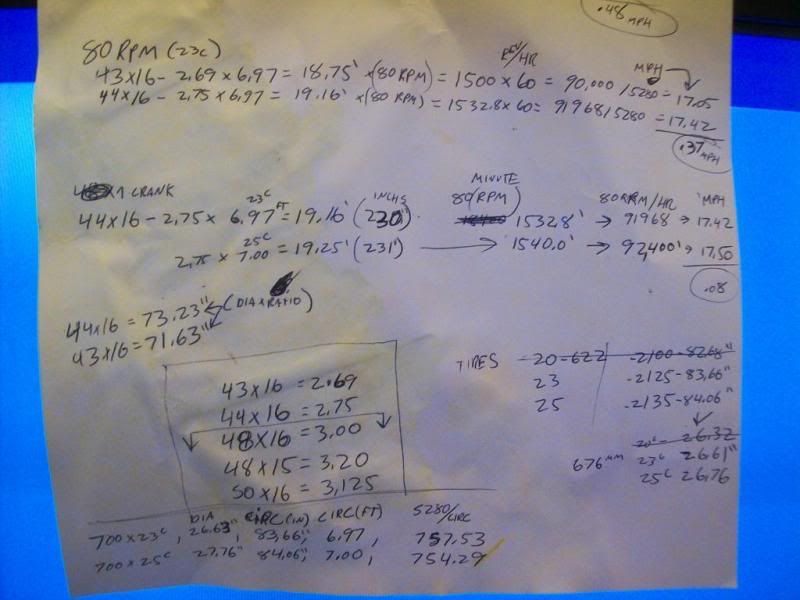 .48 MPH
80 RPM (23C)
REV/HR
MPH
43X16 - 2.69 x 6.97 = 18.75' x(80 RPM) = 1500 x 60 = 90,000 /5280 = 17.05
44X16 - 2.75 x 6.97 = 19.16' x(80 RPM) = 1532.8 x 60 = 91968/5280 = 17.42
.37 MPH
X1 CRANK
23C FT INCHS MINUTE 80(RPM) 80RPM/HR MPH
44X16 - 2.75 x 6.97 = 19.16' (230) 1532.8' → 91968 → 17.42
25C
2.75 x 7.00 = 19.25' (231') → 1540.0' → 92,400' → 17.50
.08
44X16 = 73.23" (DIA x RATIO)
43X16 = 71.63"
TIRES 20-622 -2100-82.68"
23 -2125-83.66"
25 -2135-84.06"
43X16 = 2.69
44X16 = 2.75
48X16 = 3.00
48X15 = 3.20
50X16 = 3.125
20C - 26.32
676MM 23C 26.61"
25C 26.76
DIA CIRC(IN) CIRC(FT) 5280/CIRC
700X23C, 26.63", 83.66", 6.97, 757.53
700X25C 27.76" 84.06", 7.00, 754.29